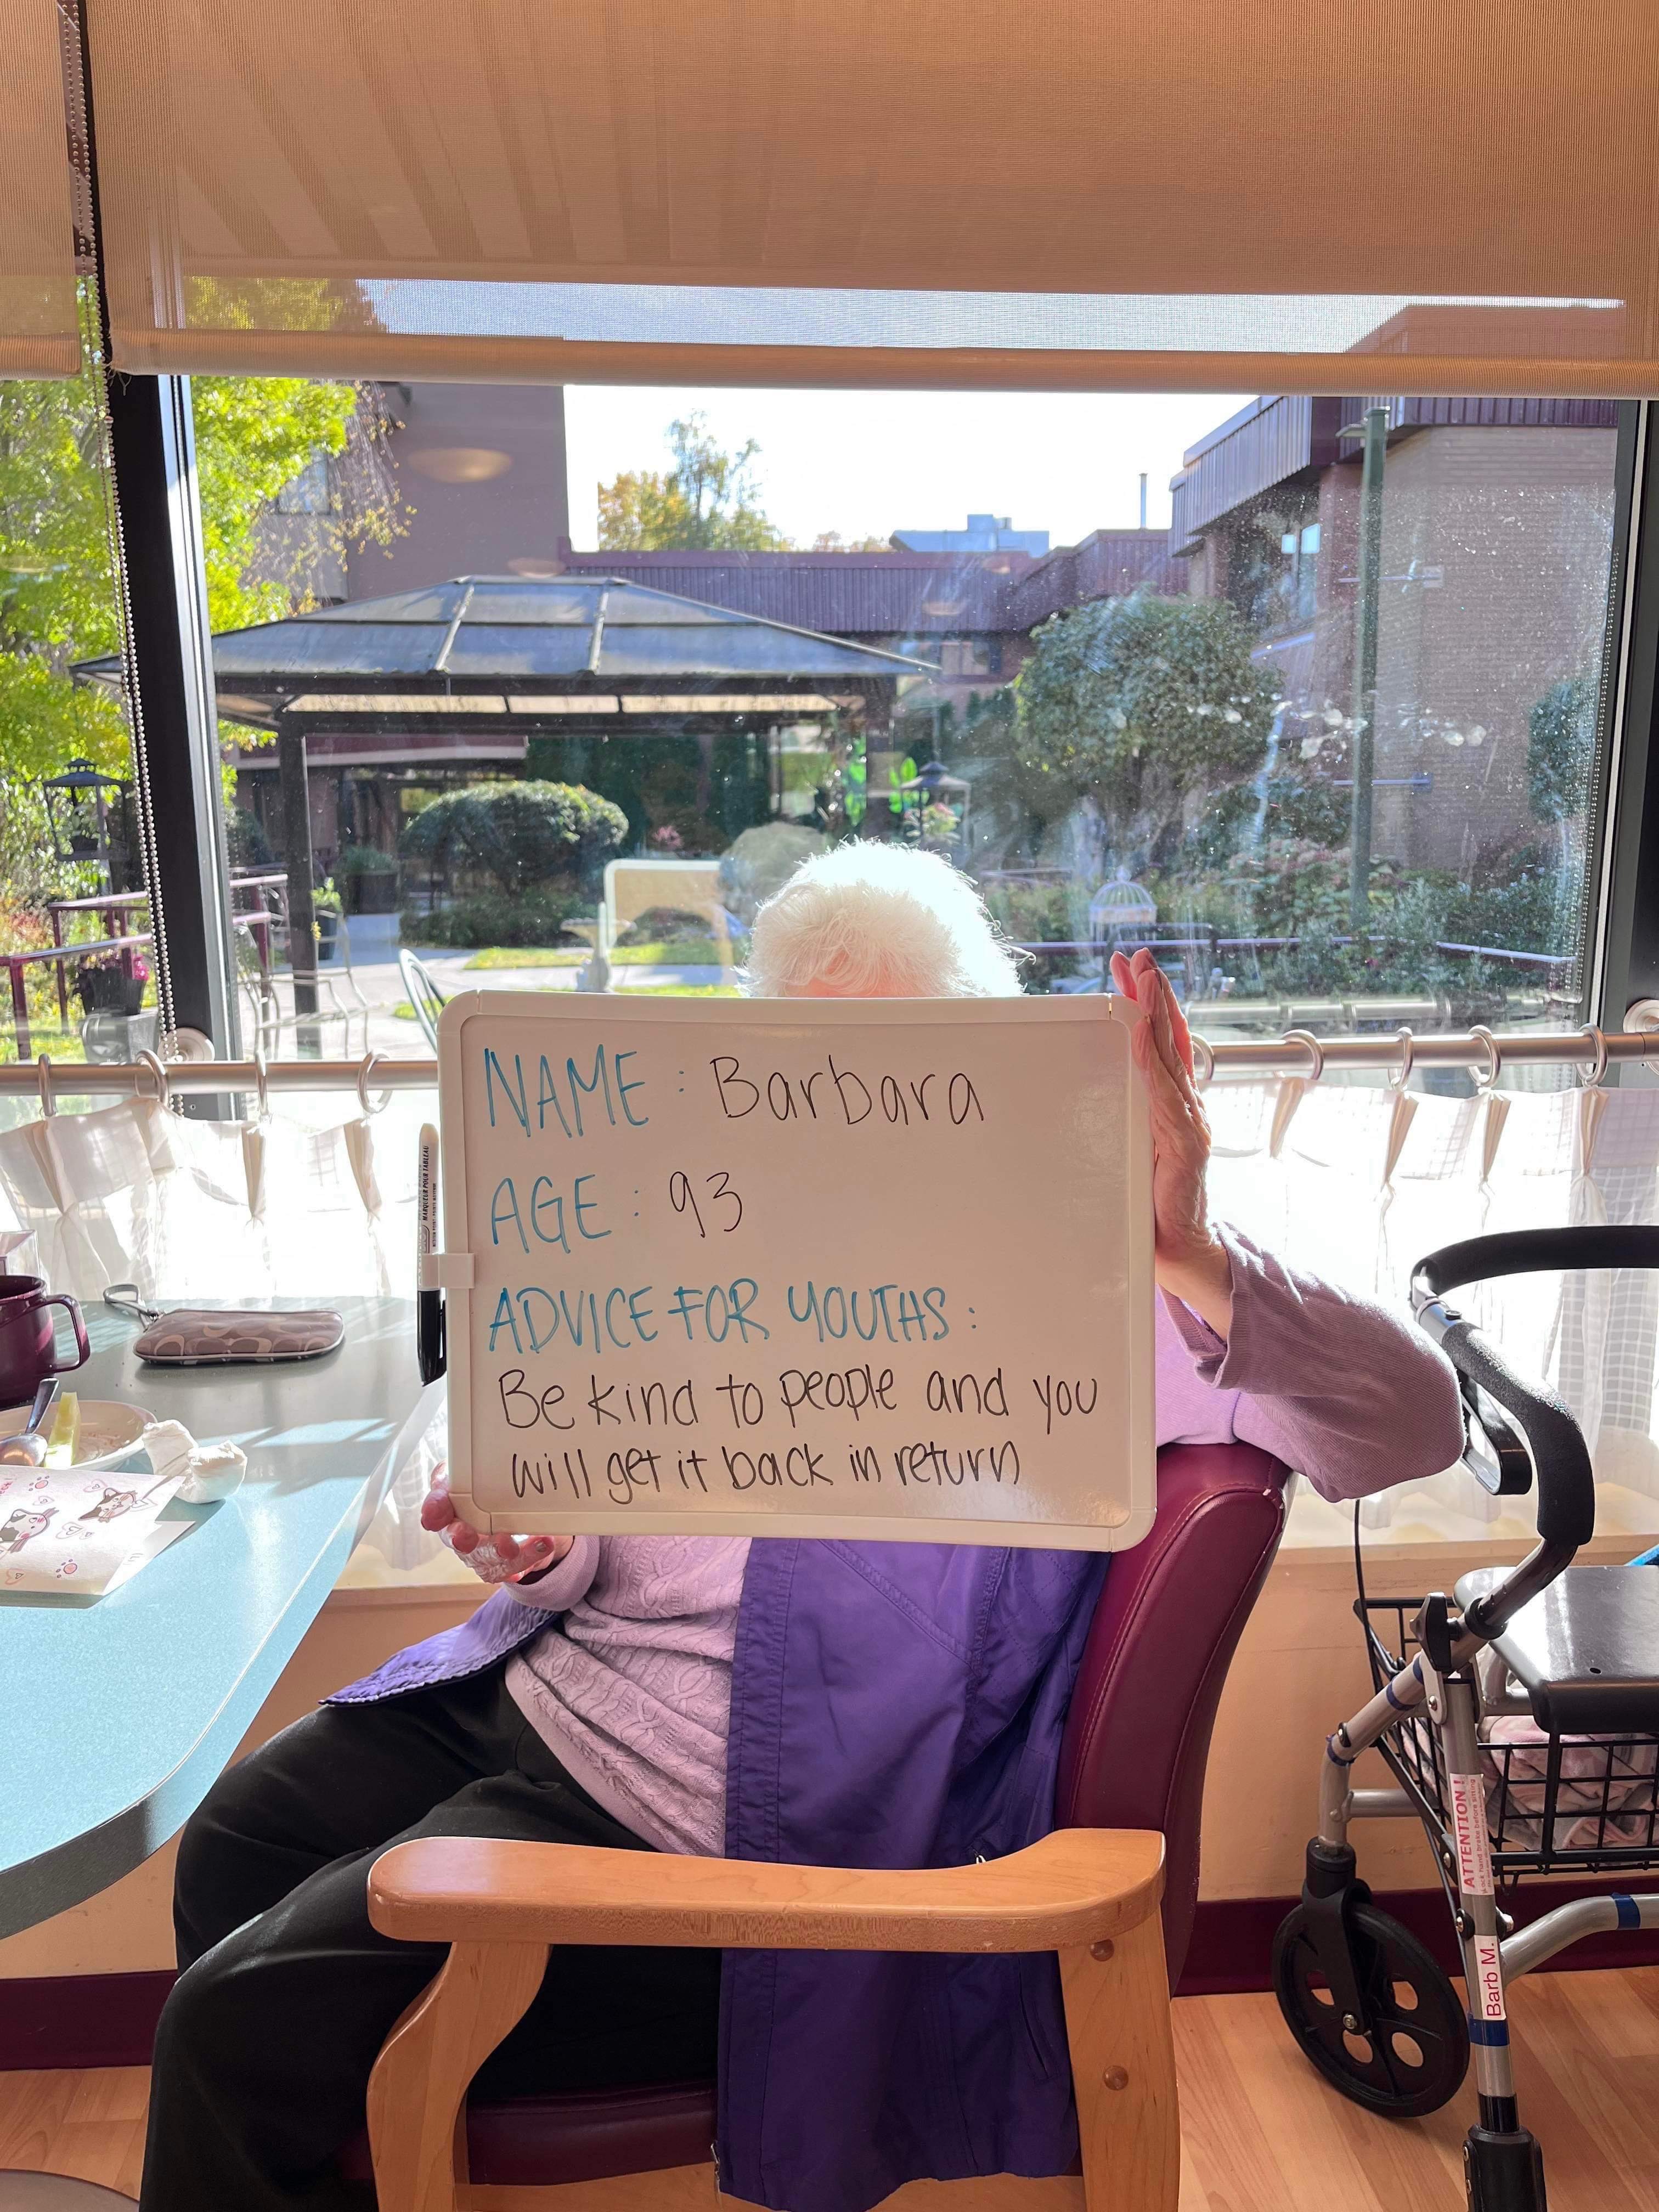 NAME: Barbara
AGE: 93
ADVICE FOR YOUTHS:
Be kind to people and you
will get it back in return
MARQUEUR POUR TABLEAU
ATTENTION!
Lock hand brake before sitting
Barb M.